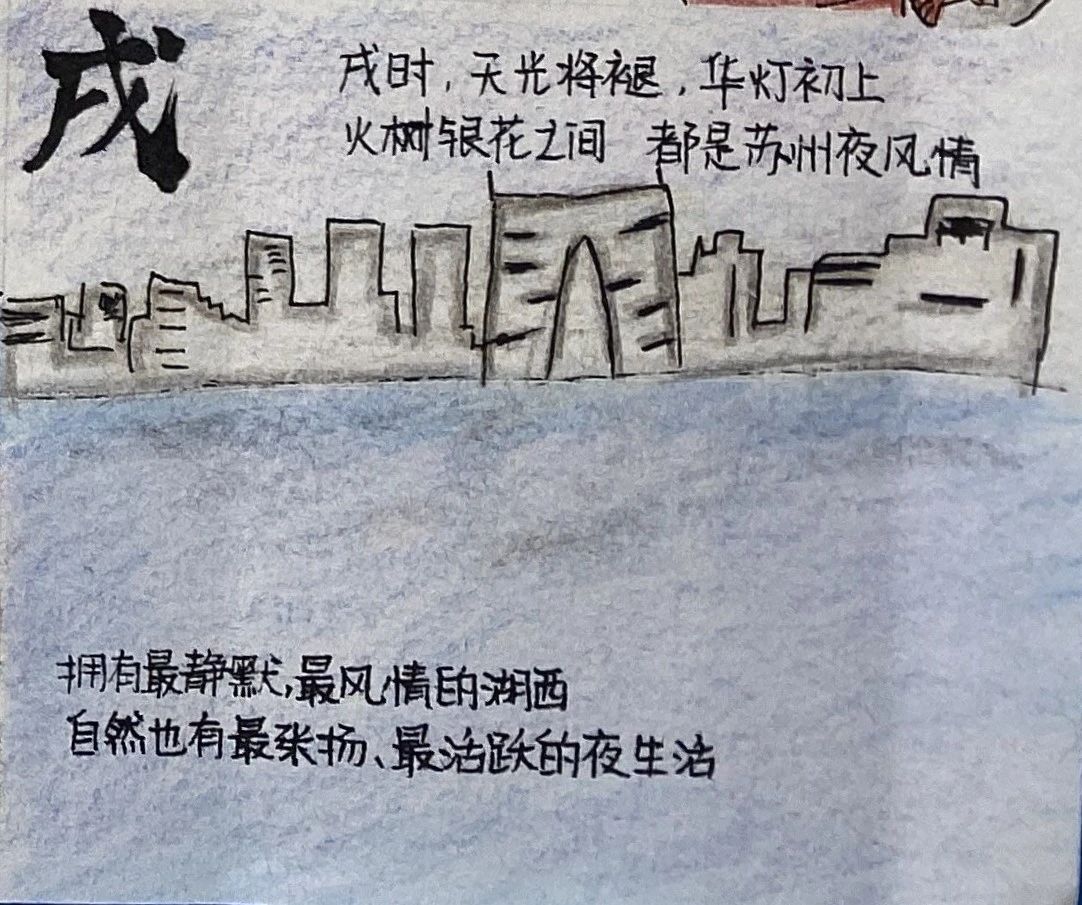 戌
戌时,天光将褪,华灯初上
火树银花之间 都是苏州夜风情
拥有最静默,最风情的湖西
自然也有最张扬、最活跃的夜生活